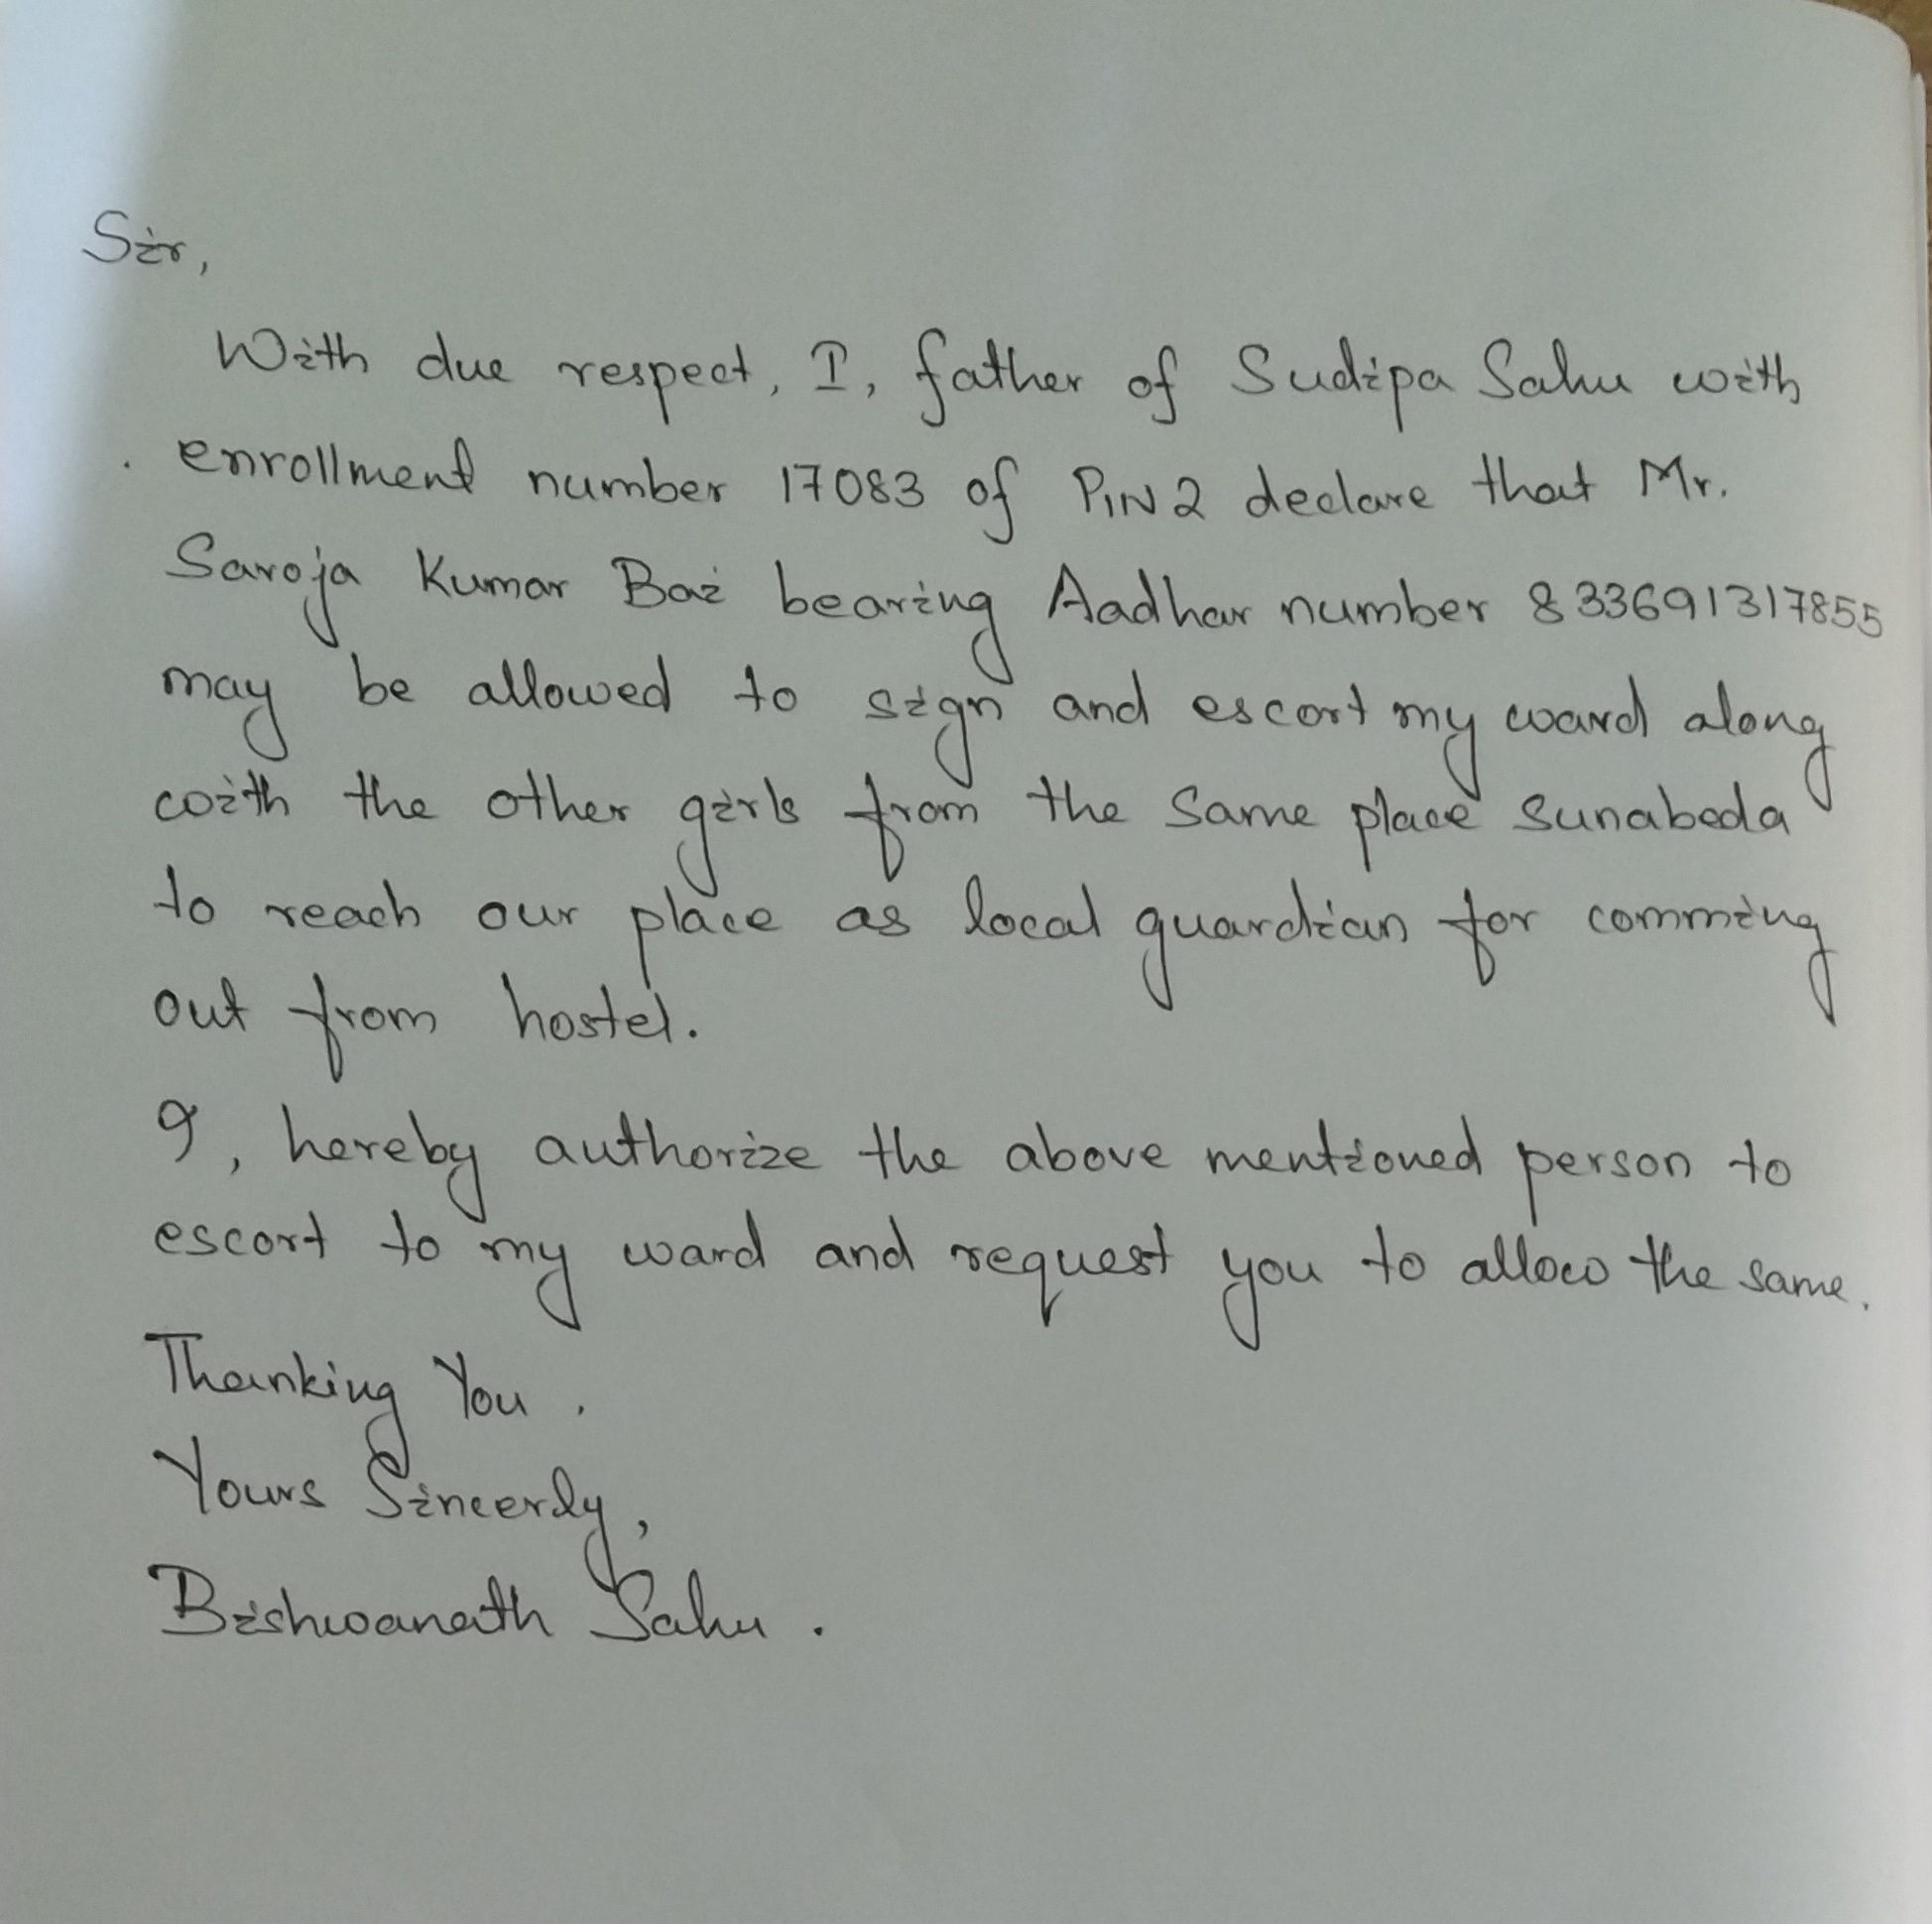 Sir,
With due respect, I, father of Sudipa Sahu with
enrollment number 17083 of PIN2 declare that Mr.
Saroja Kumar Bai bearing Aadhar number 833691317855
may be allowed to sign and escort my ward along
with the other girls from the same place Sunabeda
to reach our place as local guardian for comming
out from hostel.
I, hereby authorize the above mentioned person to
escort to my ward and request you to allow the same.
Thanking You.
Yours Sincerly,
Bishwanath Sahu.